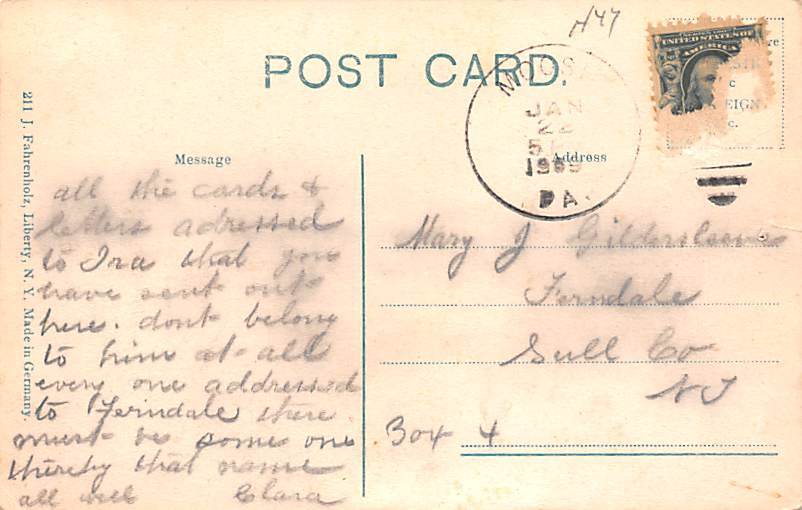 H47
POST CARD.
MOOSIC
JAN
22
1909
PA.
UNITED STATES OF
AMERICA
re
c
EIGN
c.
Message
Address
211 J. Fahrenholz, Liberty, N. Y. Made in Germany.
all the cards &
letters adressed
to Ira that you
have sent out
here. dont belong
to him at all
every one addressed
to Ferndale there
must be some one
thereby that name
all well Clara
Mary J Gildersleeve
Ferndale
Sull Co
NY
Box 4